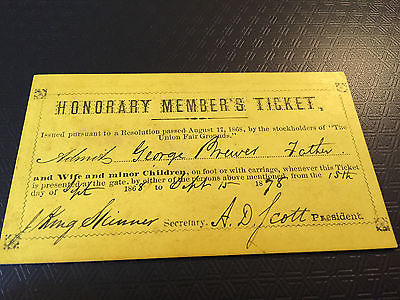 HONORARY MEMBER'S TICKET,
Issued pursuant to a Resolution passed August 17, 1868, by the stockholders of "The
Union Fair Grounds."
Admit George Brewer Father
and Wife and minor Children, on foot or with carriage, whenever this Ticket
is presented at the gate, by either of the persons above mentioned, from the 15th
day of Sept 1868 to Sept 15 1878
J King Skinner Secretary. A. D. Scott President.